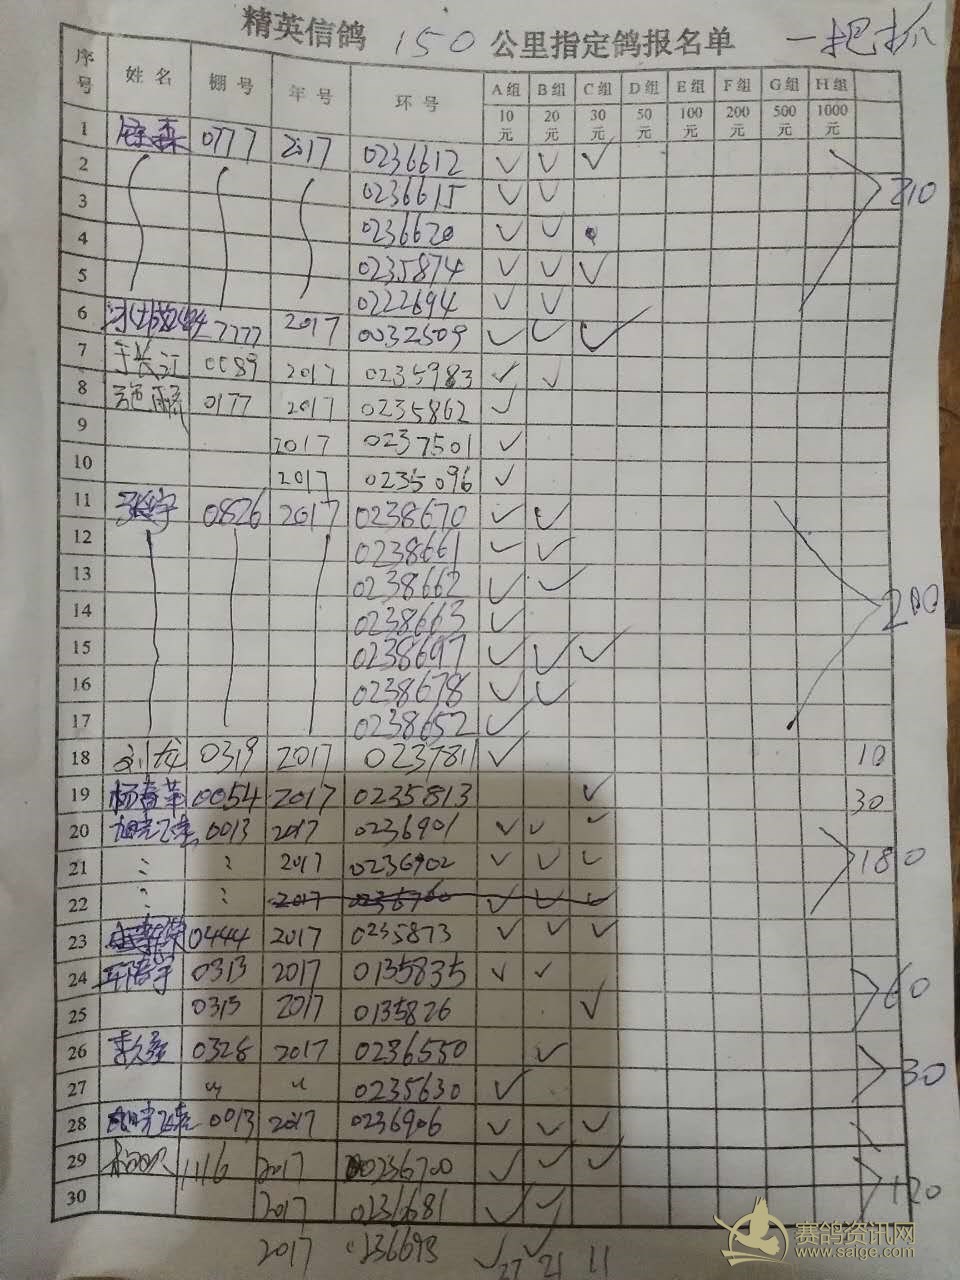 精英信鸽 150 公里指定鸽报名单 一把抓
序号 姓名 棚号 年号 环号 A组 B组 C组 D组 E组 F组 G组 H组
10元 20元 30元 50元 100元 200元 500元 1000元
1 0777 2017 0236612 ✓ ✓ ✓
2 0236615 ✓ ✓ 210
3 0236620 ✓ ✓
4 0235874 ✓ ✓ ✓
5 0222694 ✓ ✓
6 7777 2017 0032509 ✓ ✓ ✓
7 于长江 0089 2017 0235983 ✓ ✓
8 施鹏 0177 2017 0235862 ✓
9 2017 0237501 ✓
10 2017 0235096 ✓
11 0826 2017 0238670 ✓ ✓
12 0238661 ✓ ✓
13 0238662 ✓ ✓
14 0238663 ✓ 200
15 0238697 ✓ ✓ ✓
16 0238678 ✓ ✓
17 0238652 ✓
18 刘龙 0319 2017 023781 ✓ 10
19 杨春革 0054 2017 0235813 ✓ 30
20 0013 2017 0236901 ✓ ✓ ✓
21 2017 0236902 ✓ ✓ ✓ 180
22 2017 ✓ ✓ ✓
23 0444 2017 0235873 ✓ ✓ ✓
24 0313 2017 0135835 ✓ ✓ 60
25 0313 2017 0135826 ✓
26 0328 2017 0236550 ✓ 30
27 〃 〃 0235630 ✓
28 0013 2017 0236906 ✓ ✓ ✓
29 1116 2017 0236700 ✓ ✓ ✓
30 2017 0236681 ✓ ✓ 120
2017 0236693 ✓ ✓
27 21 11
赛鸽资讯网
www.saige.com